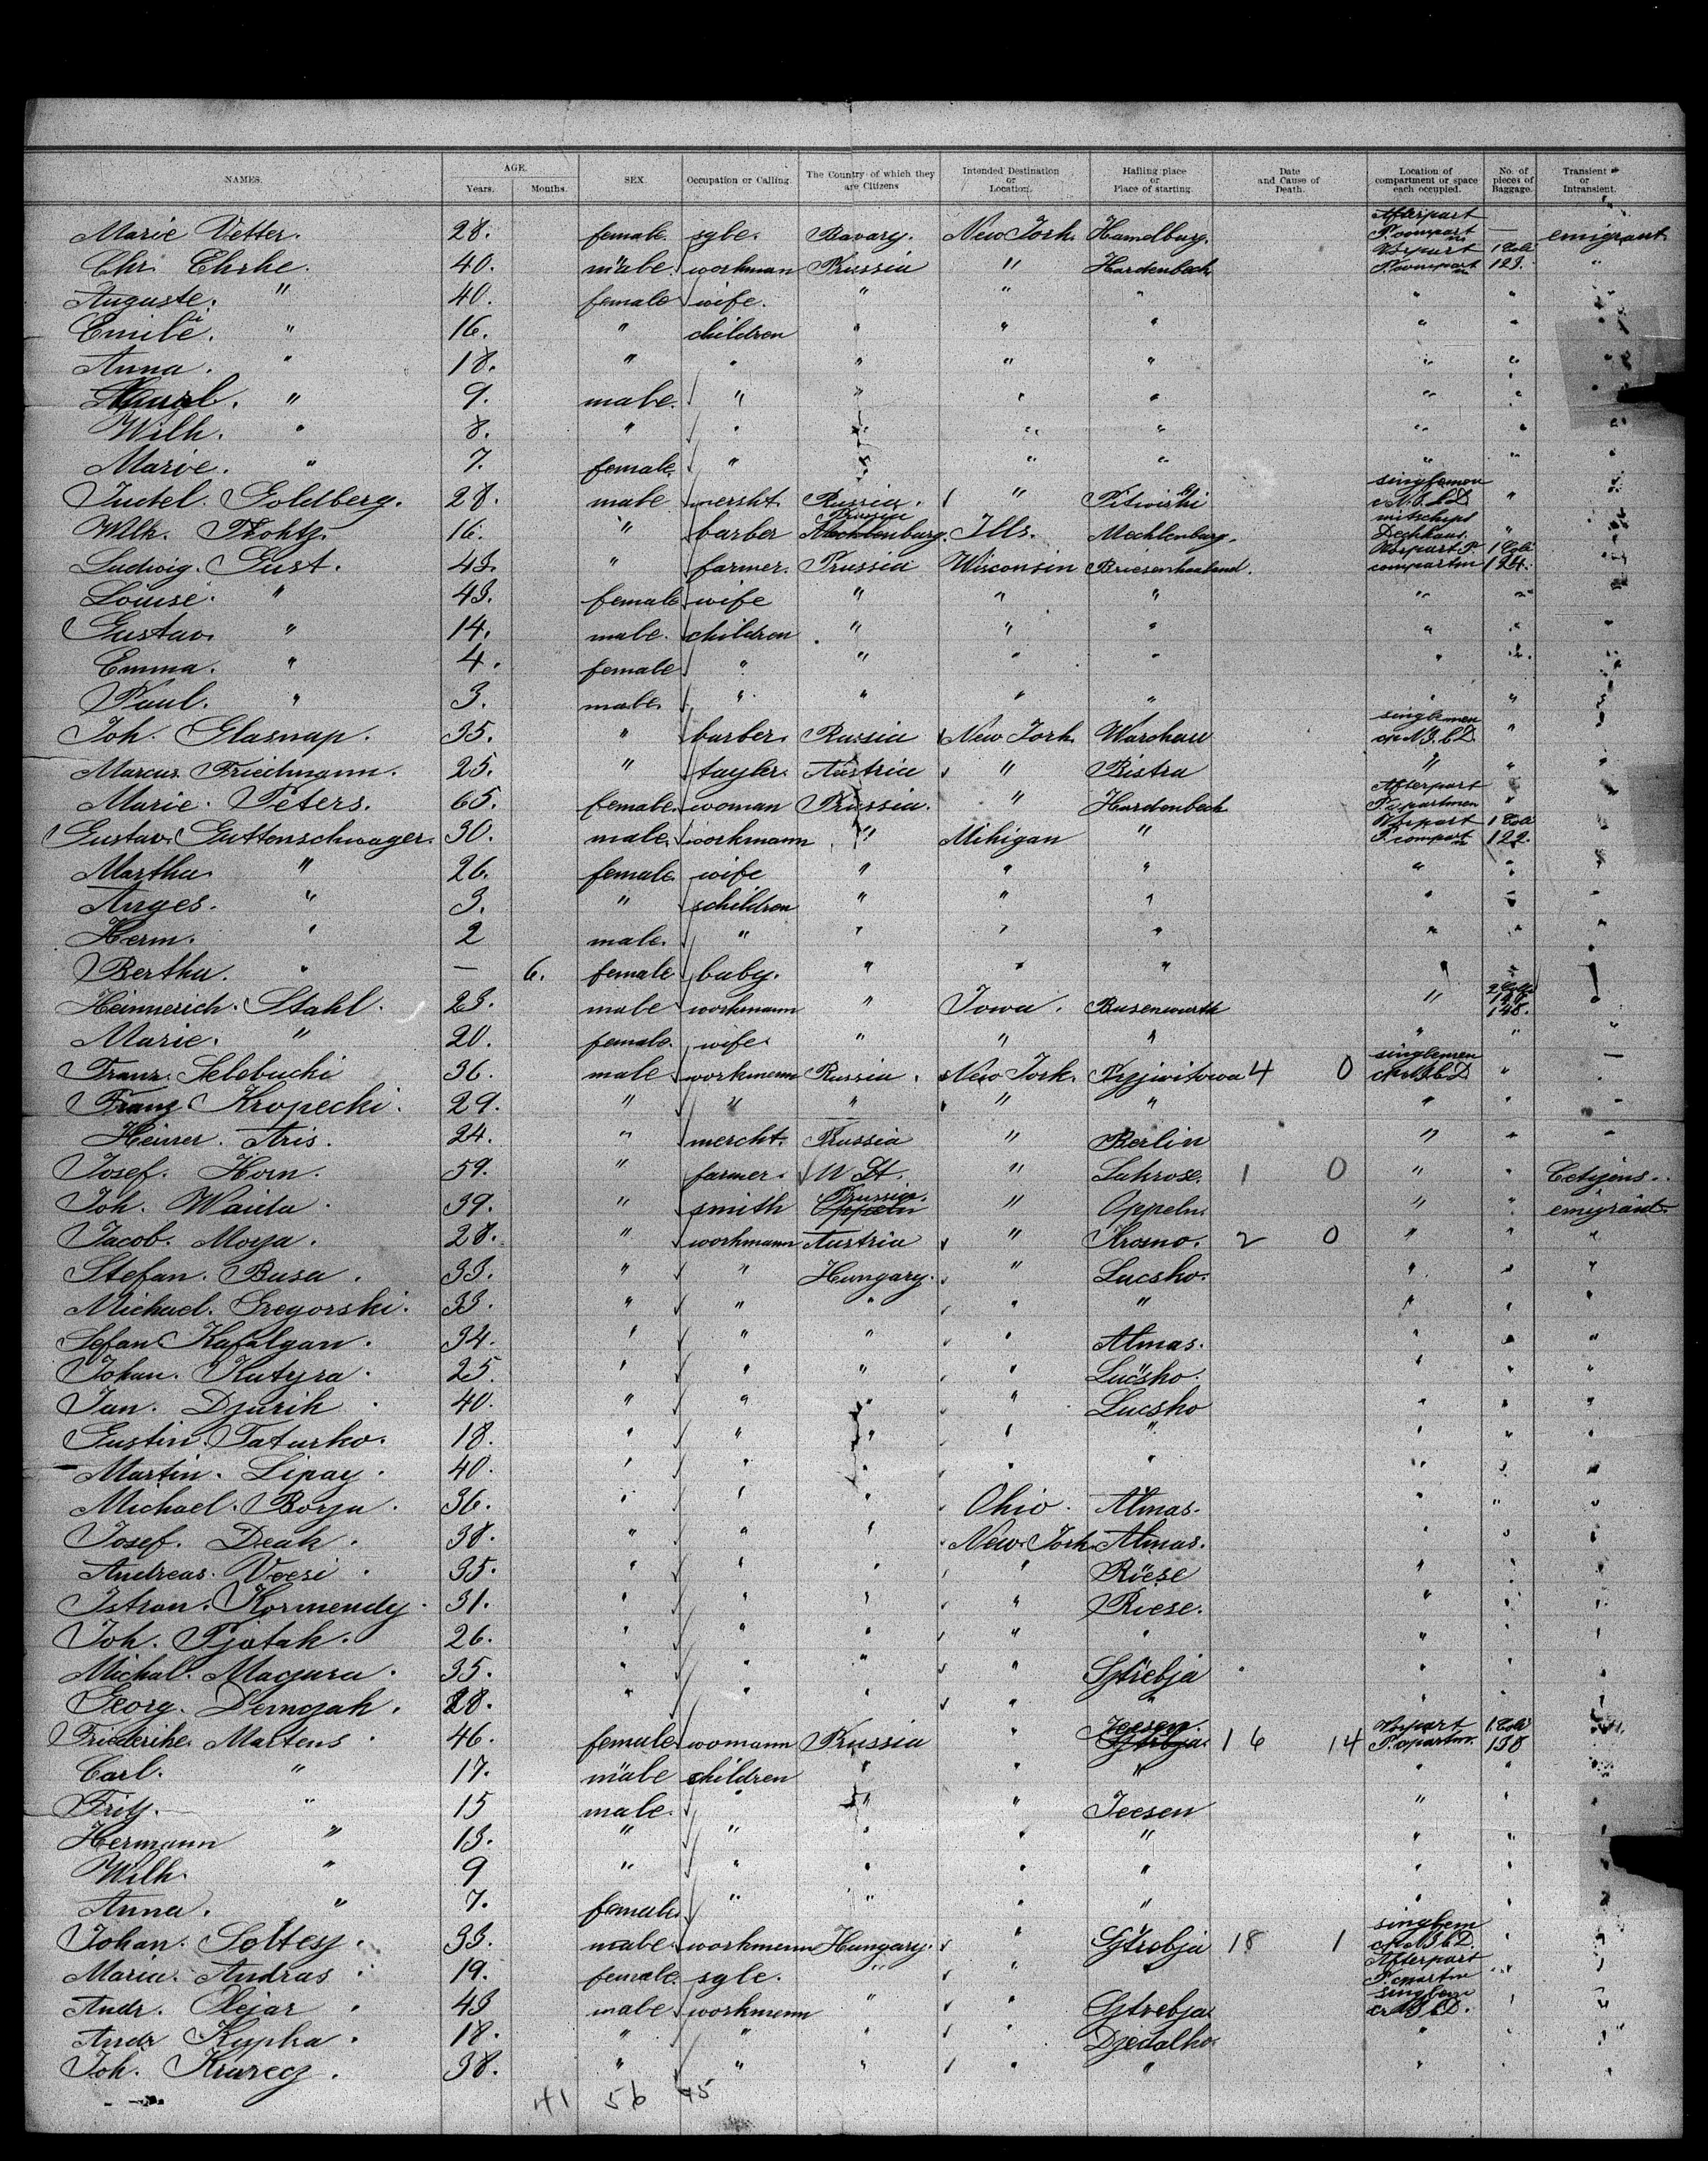 NAMES. AGE. Years. Months. SEX. Occupation or Calling. The Country of which they are Citizens Intended Destination or Location. Hailing place or Place of starting. Date and Cause of Death. Location of compartment or space each occupied. No. of pieces of Baggage. Transient or Intransient.
Marie Vetter. 28. female. sgle. Bavary. New York. Hamelburg. Afterpart P. compart — emigrant
Chr. Ehrke. 40. male. workman Prussia " Hardenbeck Vorpart P. compart 1 Coli 123. "
Auguste. " 40. female wife. " " " " " "
Emilie. " 16. " children " " " " " "
Anna. " 18. " " " " " " " "
" 9. male. " " " " " " "
Wilh. " 8. " " " " " " " "
Marie. " 7. female. " " " " " " "
Judel. Goldberg. 28. male mersht. Russia. " singlemen " "
Wilh. 16. " barber Prussia Mecklenburg. Ills. Mecklenburg. mitschips Deckhaus. " "
Ludwig. Gust. 43. " farmer. Prussia Wisconsin Vorpart P. compartm 1 Coli 124. "
Louise. " 43. female wife " " " " " "
Gustav. " 14. male. children " " " " " "
Emma. " 4. female " " " " " " "
Paul. " 3. male. " " " " " " "
Joh. Glasnap. 35. " barber. Russia New York. Warchau singlemen " "
Marcus. Friedmann. 25. " tayler. Austria " Bistra " " "
Marie. Peters. 65. female. woman Prussia. " Hardenbeck Afterpart P. cpartmen " "
Gustav. Guttenschwager. 30. male. workmann " Mihigan " Vorpart P. compart 1 Coli 122. "
Martha. " 26. female. wife " " " " " "
Anges. " 3. " schildren " " " " " "
Herm. " 2 male. " " " " " " "
Bertha. " — 6. female baby. " " " " " "
Heinnerich. Stahl. 23. male workmann " Iowa. Busenwurth " 2 Coli 148. "
Marie. " 20. female. wife " " " " " "
Franz. Selobuchi 36. male workmenn Russia. New York. 4 0 singlemen " "
Franz. Kropecki. 29. " " " " " " " "
Heinrer. Aris. 24. " mercht. Prussia " Berlin " " "
Josef. Horn. 59. " farmer. " 1 0 " "
Joh. Waida. 39. " smith Prussia. Oppeln " Oppeln. " " emigrant.
Jacob. Moya. 28. " workmann Austria " Krosno. 2 0 " " "
Stefan. Busa. 33. " " Hungary. " Lucsko. " " "
Michael. Gregorski. 33. " " " " " " " "
Sefan Kafalgan. 34. " " " " Almas. " " "
Johan. Kutyra. 25. " " " " Lucsko. " " "
Jan. Djurik. 40. " " " " Lucsko " " "
Gustin. Taturko. 18. " " " " " " " "
Martin. Lipay. 40. " " " " " " " "
Michael. Borja. 36. " " " Ohio. Almas. " " "
Josef. Deak. 38. " " " New York Almas. " " "
Andreas. Vocsi. 35. " " " " Riese " " "
Istvan. Kormendy. 31. " " " " Riese. " " "
Joh. Pjatak. 26. " " " " " " " "
Michal. Magura. 35. " " " " Gjtrebja " " "
Georg. Demczak. 28. " " " " " " " "
Friederike. Martens. 46. female. womann Prussia " Jeesen. Gjtrebja. 16 14 Vorpart P. cpartm. 1 Coli 138 "
Carl. " 17. male children " " " " " "
Fritz. " 15 male. " " " Jeesen " " "
Hermann " 13. " " " " " " " "
Wilh. " 9 " " " " " " " "
Anna. " 7. female. " " " " " " "
Johan. Soltesz. 33. male. workmenn Hungary. " Gjtrebja 18 1 singlem " "
Maria. Andras. 19. female. sgle. " " " Afterpart P. cpartm " "
Andr. Olejar. 43 male. workmenn " " Gjtrebja. singlem " "
Andr Kypka. 18. " " " " Djedalko. " " "
Joh. Kravecz. 38. " " " " " " " "
41 56 45